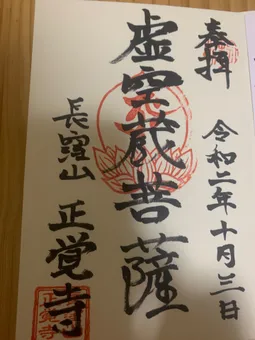 奉拝
令和二年十月三日
虚空蔵菩薩
長窪山
正覚寺